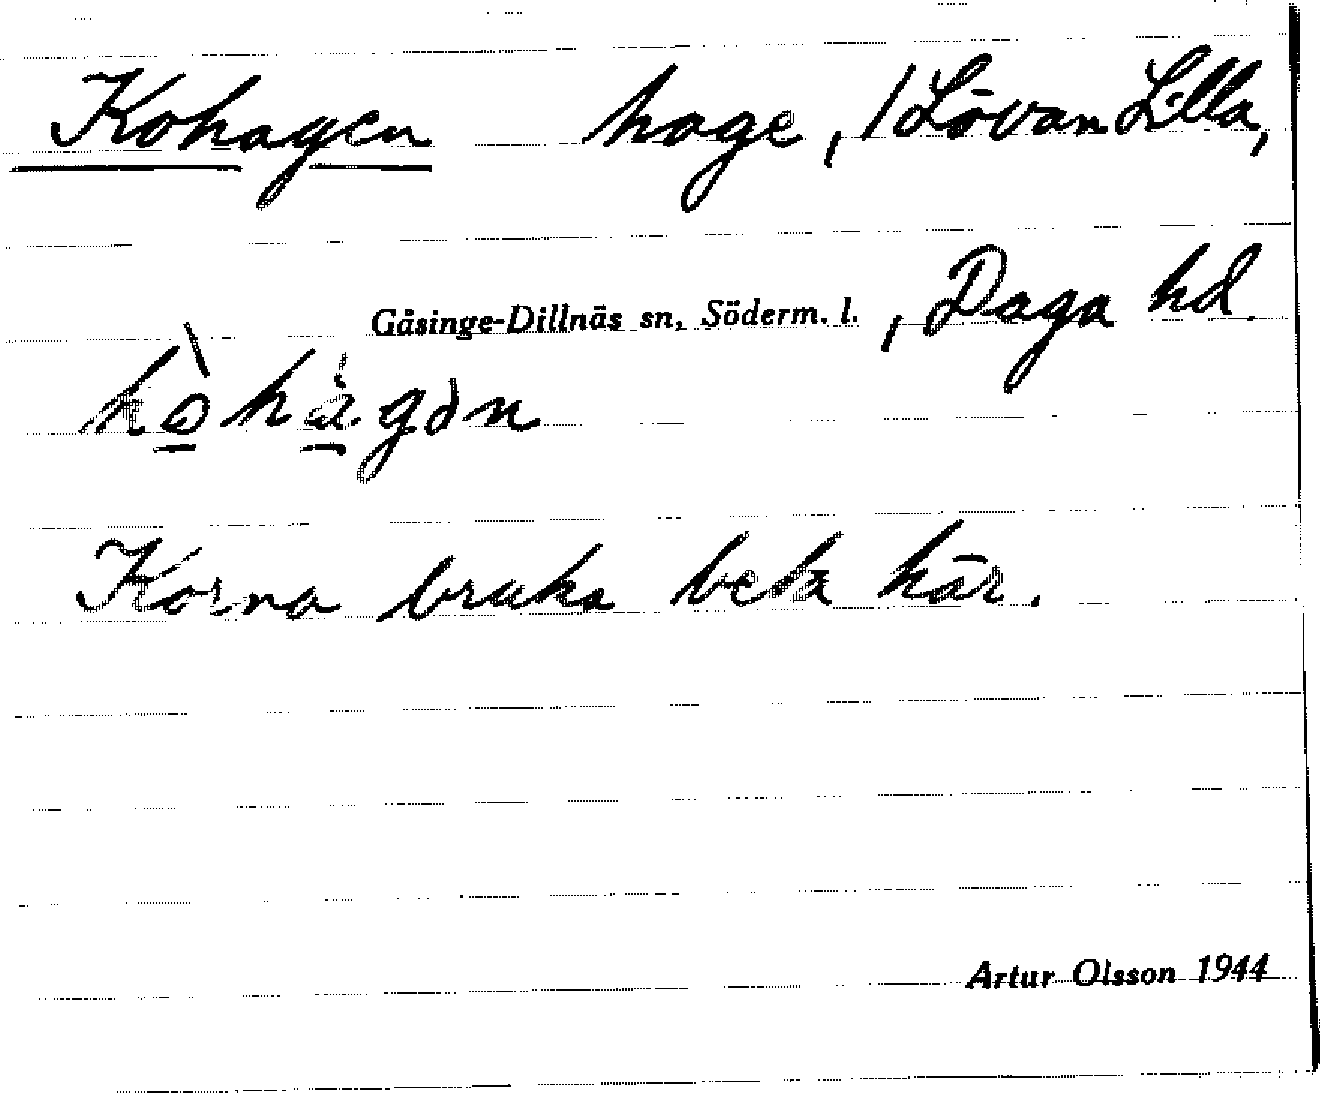 Kohagen hage, 1 Lövan Lilla,
Gåsinge-Dillnäs sn, Söderm. l. , Daga hd.
kòhágən
Korna bruka beta här.
Artur Olsson 1944